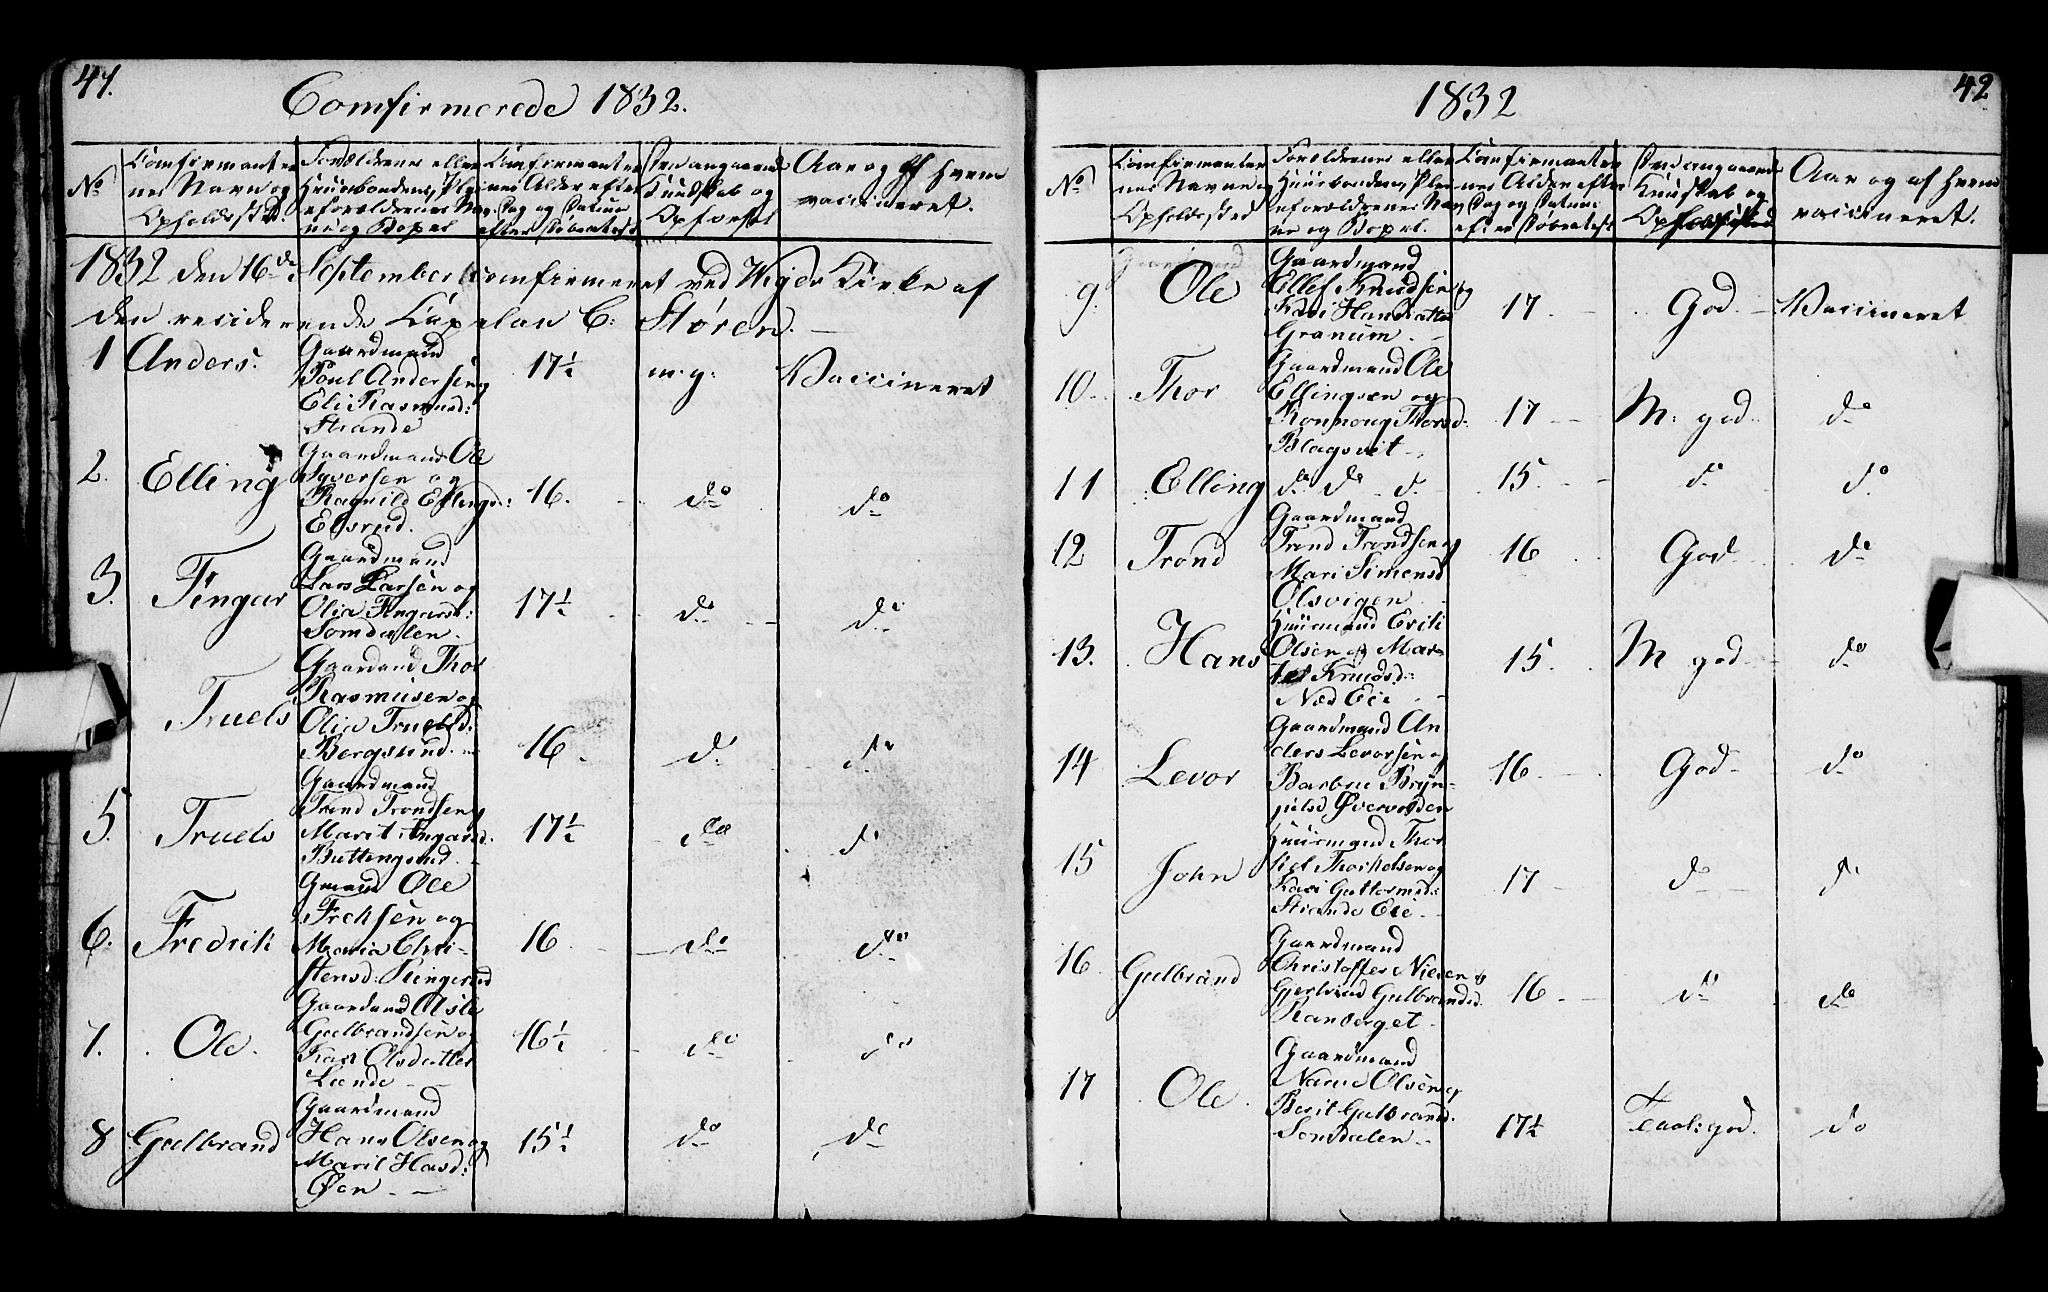 41.
Comfirmerede 1832.
No
Comfirmanter
nes Navn og
Opholdsted
Forældrenes eller
Huusbondens, Plei
eforældrenes Nav
ne og Bopel
Comfirmanter
nes Alder efter
Dag og Datum
efter Døbeattest
Dom angaaende
Kundskab og
Opførsel
Aar og af hvem
vaccineret.
1832 den 16de September comfirmeret ved Wiger Kirke af
den residerende Capelan C: Støren.
1 Anders.
Gaardmand
Poul Andersen og
Eli Rasmusd:
Strande
17½
m.g.
Vaccineret
2. Elling
Gaardmand Ole
Syversen og
Ragnild Ellingsd:
Elsrud.
16.
do
do
3. Fingar
Gaardmand
Lars Larsen og
Olia Fingarsd:
Somdalen
17½
do
do
Truels
Gaardand Thor
Rasmusen og
Olia Truelsd:
Bergsund.
16.
do
do
5. Truels
Gaardmand
Trond Trondsen og
Marit Angarsd.
Buttengsrud
17½
do
do
6. Fredrik
Gmand Ole
Ericksen og
Maria Chri-
stensd: Ringerud
16
do
do
7. Ole.
Gaardmand Asle
Gulbrandsen og
Kari Olsdatter
Lunde
16½
do
do
8 Gulbrand
Gaardmand
Hans Olsen og
Marit Hasd:
Øen
15½
do
do
42
1832
No
Comfirmanter
nes Navne og
Opholdssted
Forældrenes eller
Huusbondens, Plei
eforældrenes Nav
ne og Bopel.
Comfirmanter
nes Alder efter
Dag og Datum
efter Døbeattest
Dom angaaende
Kundskab og
Aar og af hvem
vaccineret.
9. Ole
Gaardmand
Ellef Knudsen og
Kari Hansdatter
Granum
17
God
Vaccineret
10. Thor
Gaardmand Ole
Ellingsen og
Ronnoug Thorsd.
Blagsvet
17
M: god
do
11 Elling
do do do
15
do
do
12 Trond
Gaardmand
Trond Trondsen og
Mari Simensd
Olsvigen
16
God
do
13. Hans
Huusmand Erik
Olsen og Mar-
tet Knudsd:
Næs Eie
15.
M god
do
14 Levor
Gaardmand An
ders Levorsen og
Barbroe Bryn-
julsd Øvervolden
16
God
do
15 John
Huusmand Thor
kel Thorkelsen og
Kari Guttormsd:
Strande Eie
17
do
do
16 Gulbrand
Gaardmand
Christoffer Nilsen og
Gjertrud Gulbrandsd.
Ramberget
16
do
do
17 Ole
Gaardmand
Narve Olsen og
Berit Gulbrand.
Somdalen
17½
Taal: god.
do